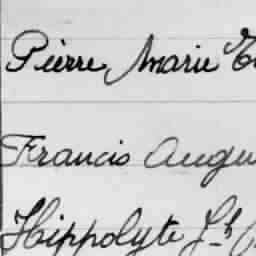 Pierre Marie
Francis Augu
Hippolyte